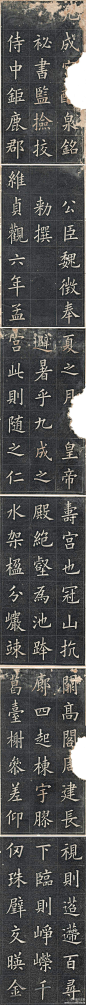 成宮醴泉銘
祕書監撿挍
侍中鉅鹿郡
公臣魏徵奉
勑撰
維貞觀六年孟
夏之月皇帝
避暑乎九成之
宮此則隨之仁
壽宮也冠山抗
殿絕壑為池跨
水架楹分巖竦
闕高閣周建長
廊四起棟宇膠
葛臺榭參差仰
視則迢遰百尋
下臨則崢嶸千
仞珠璧交暎金